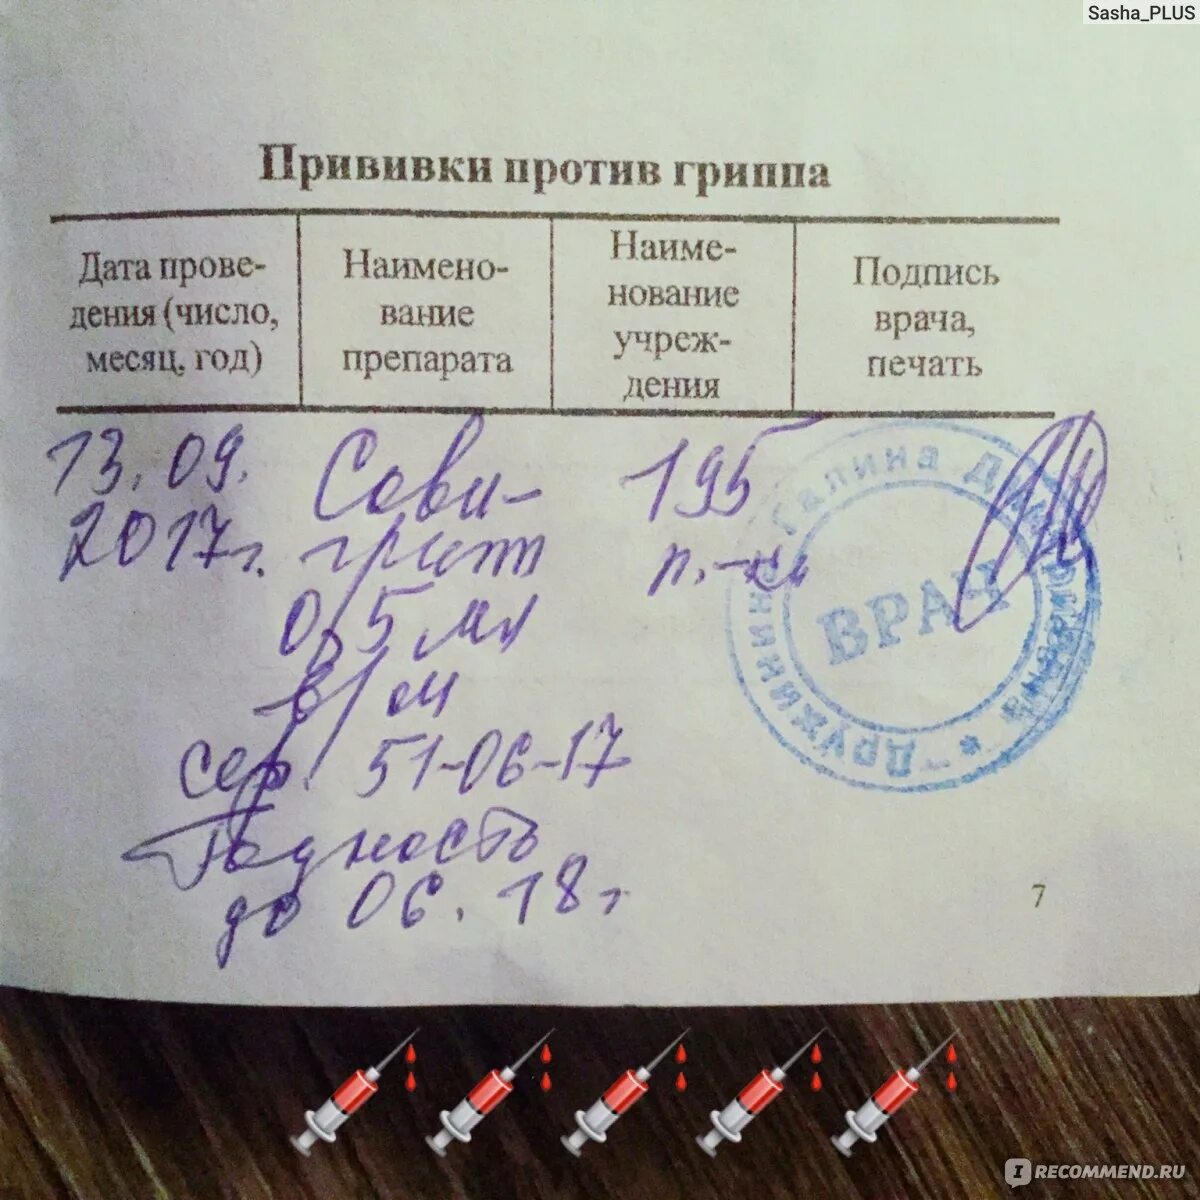 Sasha_PLUS
Прививки против гриппа
Дата прове-
дения (число,
месяц, год)
Наимено-
вание
препарата
Наиме-
нование
учреж-
дения
Подпись
врача,
печать
13.09.
2017г.
Сови-
грипп
0,5 мл
в/м
сер. 51-06-17
Годность
до 06.18г
195
п-ка
Дружинина Галина
ВРАЧ
7
IRECOMMEND.RU